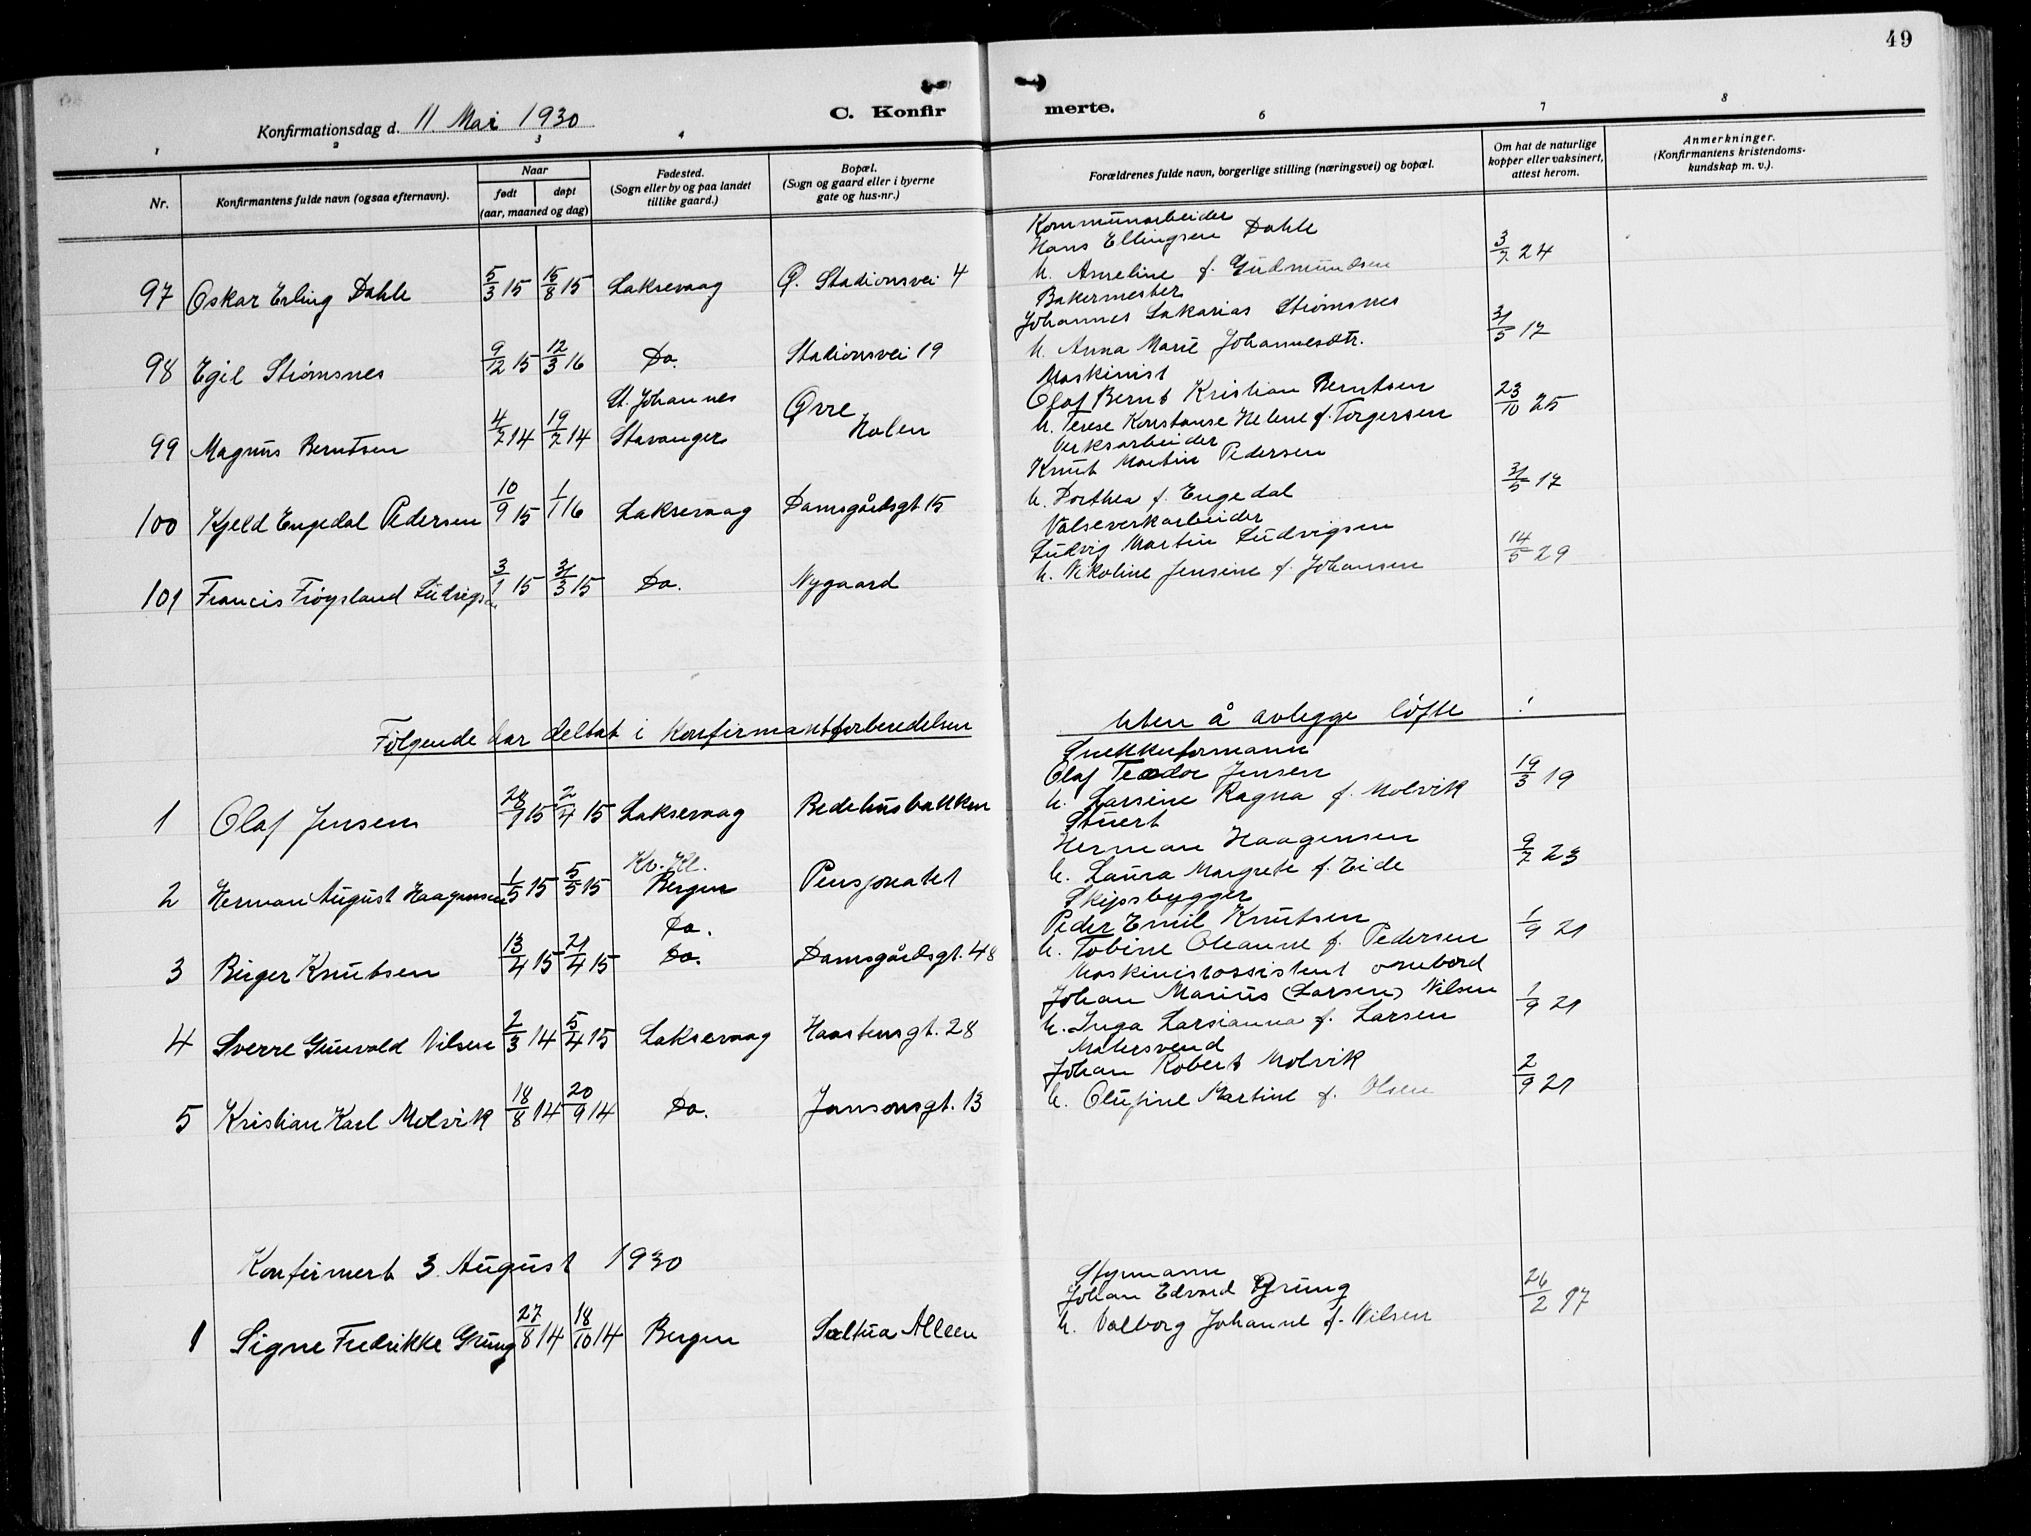 49
Konfirmationsdag d. 11 Mai 1930
C. Konfir
merte.
1 2 3 4 6 7 8
Nr.
Konfirmantens fulde navn (ogsaa efternavn).
Naar
født
døpt
(aar, maaned og dag)
Fødested.
(Sogn eller by og paa landet
tillike gaard.)
Bopæl.
(Sogn og gaard eller i byerne
gate og hus-nr.)
Forældrenes fulde navn, borgerlige stilling (næringsvei) og bopæl.
Om hat de naturlige
kopper eller vaksinert,
attest herom.
Anmerkninger.
(Konfirmantens kristendoms-
kundskap m. v.).
Kommunarbeider
Hans Ellingsen Dahle
97 Oskar Erling Dahle 5/3 15 15/8 15 Laksevaag Ø. Stadionsvei 4 h. Anneline f. Gudmundsen 3/7 24
Bakermester
Johannes Sakarias Strømsnes
98 Egil Strømsnes 9/12 15 12/3 16 Do. Stadionsvei 19 h. Anna Marie Johannesdtr. 31/5 17
Maskinist
St. Johannes Øvre Olaf Bernt Kristian Berntsen
99 Magnus Berntsen 4/2 14 19/2 14 Stavanger Holen h. Terese Konstanse Helene f. Torgersen 23/10 25
Verksarbeider
Knut Martin Pedersen
100 Kjeld Engedal Pedersen 10/9 15 1/1 16 Laksevaag Damsgårdsgt 15 h. Dorthea f. Engedal 31/5 17
Valseverkarbeider
Ludvig Martin Ludvigsen
101 Francis Frøysland Ludvigsen 3/1 15 31/3 15 Do. Nygaard h. Nikoline Jensine f. Johansen 14/5 29
Følgende har deltat i konfirmantforberedelsen uten å avlegge løfte !
Snekkerformann
Olaf Teodor Jensen
1 Olaf Jensen 28/1 15 2/4 15 Laksevaag Bedehusbakken h. Larsine Ragna f. Molvik 19/3 19
Stuert
Kv. Kl. Herman Haagensen
2 Herman August Haagensen 1/5 15 5/5 15 Bergen Pensjonatet h. Laura Margrete f. Eide 9/7 23
Skipsbygger
Do. Peder Emil Knutsen
3 Birger Knutsen 13/4 15 21/4 15 Do. Damsgårdsgt. 48 h. Tobine Oleanne f. Pedersen 1/9 21
Maskinistassistent ombord
Johan Marius (Larsen) Nilsen
4 Sverre Gunvald Nilsen 2/3 14 5/4 15 Laksevaag Haastensgt. 28 h. Inga Larsianna f. Larsen 1/9 21
Malersvend
Johan Robert Molvik
5 Kristian Karl Molvik 18/8 14 20/9 14 Do. Jansonsgt. 13 h. Olufine Martine f. Olsen 2/9 21
Konfirmert 3. August 1930
Styrmann
Johan Edvard Grung
1 Signe Fredrikke Grung 27/8 14 18/10 14 Bergen Sæltua Alleen h. Valborg Johanne f. Nilsen 26/2 17